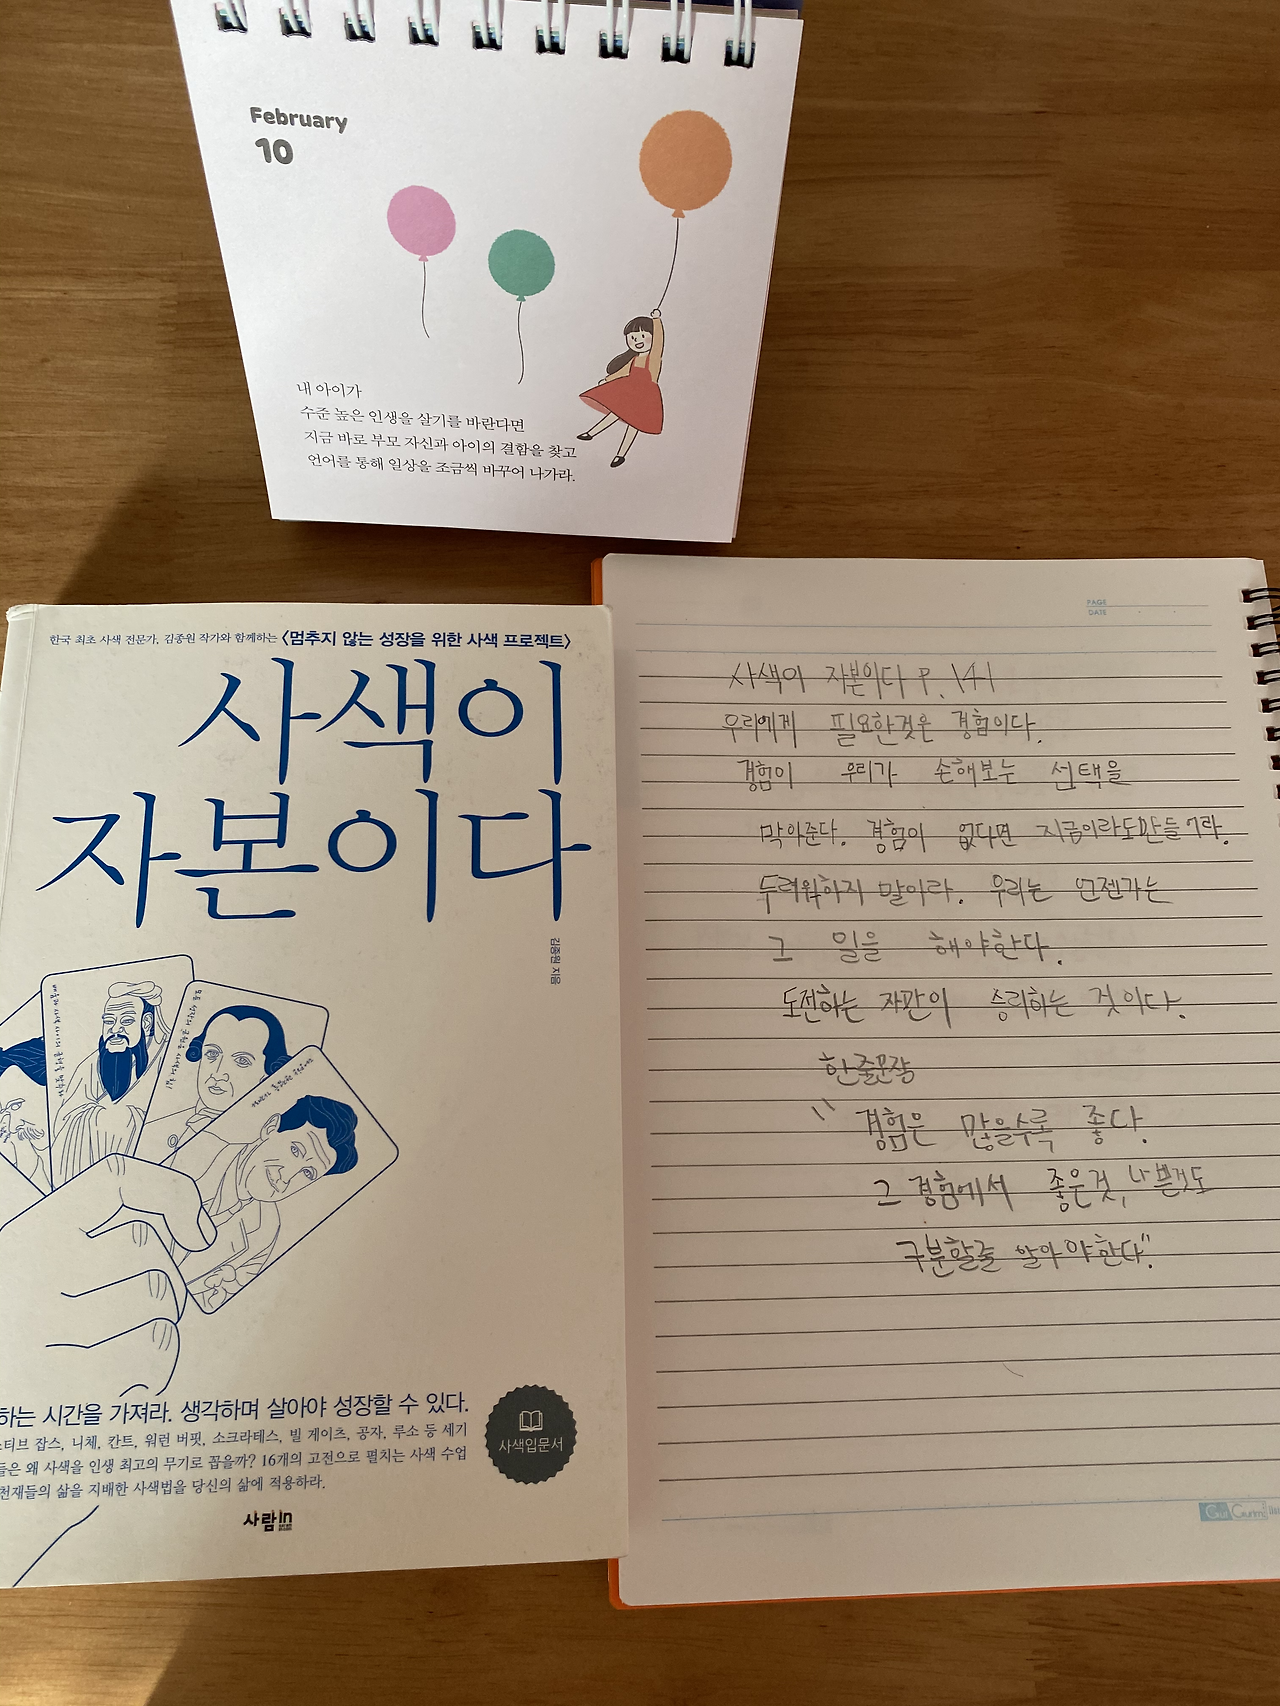 February
10
내 아이가
수준 높은 인생을 살기를 바란다면
지금 바로 부모 자신과 아이의 결함을 찾고
언어를 통해 일상을 조금씩 바꾸어 나가라.
한국 최초 사색 전문가, 김종원 작가와 함께하는 〈멈추지 않는 성장을 위한 사색 프로젝트〉
사색이
자본이다
김종원 지음
하는 시간을 가져라. 생각하며 살아야 성장할 수 있다.
스티브 잡스, 니체, 칸트, 워런 버핏, 소크라테스, 빌 게이츠, 공자, 루소 등 세기
들은 왜 사색을 인생 최고의 무기로 꼽을까? 16개의 고전으로 펼치는 사색 수업
천재들의 삶을 지배한 사색법을 당신의 삶에 적용하라.
사색입문서
사람in
PAGE
DATE
사색이 자본이다 P. 141
우리에게 필요한것은 경험이다.
경험이 우리가 손해보는 선택을
막아준다. 경험이 없다면 지금이라도만들거라.
두려워하지 말아라. 우리는 언젠가는
그 일을 해야한다.
도전하는 자만이 승리하는 것이다.
한줄문장
"경험은 많을수록 좋다.
그 경험에서 좋은것, 나쁜것도
구분할줄 알아야한다"